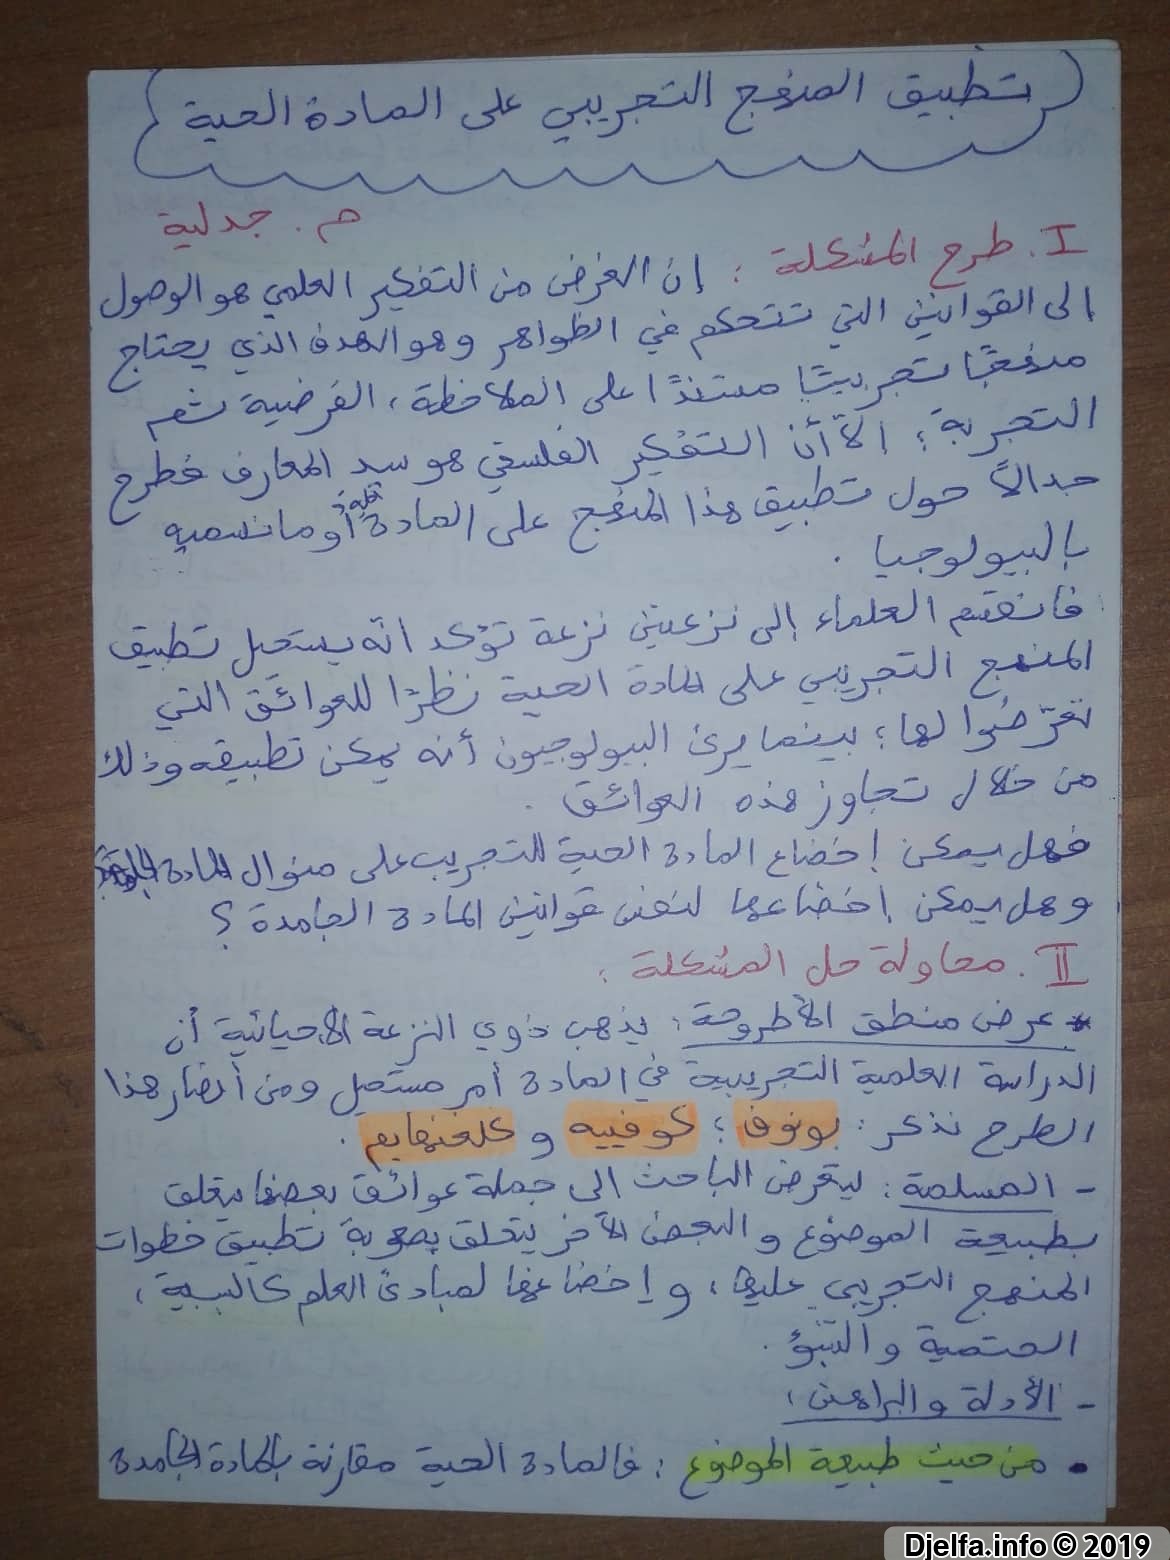 تطبيق المنهج التجريبي على المادة الحية
م. جدلية
I. طرح المشكلة : إن الغرض من التفكير العلمي هو الوصول
إلى القوانين التي تتحكم في الظواهر وهو الهدف الذي يحتاج
منهجًا تجريبيًا مستندًا على الملاحظة، الفرضية ثم
التجربة؛ الاّ أن التفكير الفلسفي هو سيد المعارف فطرح
جدالاً حول تطبيق هذا المنهج على المادة الحية أو ما نسميه
بالبيولوجيا .
فانقسم العلماء إلى نزعتين نزعة تؤكد انه يستحيل تطبيق
المنهج التجريبي على المادة الحية نظرًا للعوائق التي
تعرّضوا لها؛ بينما يرى البيولوجيون أنه يمكن تطبيقه وذلك
من خلال تجاوز هذه العوائق .
فهل يمكن إخضاع المادة الحية للتجريب على منوال المادة الجامدة؟
وهل يمكن إخضاعها لنفس قوانين المادة الجامدة ؟
II. محاولة حل المشكلة :
* عرض منطق الأطروحة : يذهب ذوي النزعة الاحيائية أن
الدراسة العلمية التجريبية في المادة أمر مستحيل ومن أنصار هذا
الطرح نذكر : بونوف ؛ كوفييه و كلغنهايم .
- المسلمة : ليتعرض الباحث الى جملة عوائق بعضها يتعلق
بطبيعة الموضوع والبعض الآخر يتعلق بصعوبة تطبيق خطوات
المنهج التجريبي عليها، وإخضاعها لمبادئ العلم كالسببية،
الحتمية والتنبؤ .
- الأدلة والبراهين :
• من حيث طبيعة الموضوع : فالمادة الحية مقارنة بالمادة الجامدة
Djelfa.info © 2019